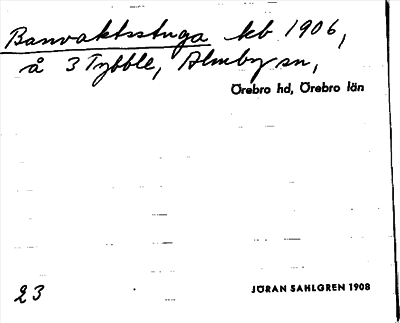 Banvaktsstuga kb 1906,
å 3 Tybble, Almby sn,
Örebro hd, Örebro län
23
JÖRAN SAHLGREN 1908